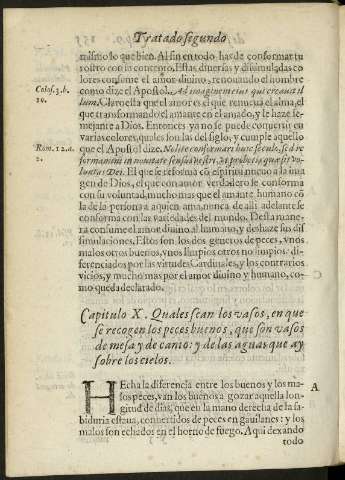 Tratado segundo
mismo lo que bien. Al fin en todo has de conformar tu
rostro con la concepto. Estas diuersas y dissimuladas co
lores consume el amor diuino, renouando el hombre
como dize el Apostol. Ad imaginem eius qui creauit il
lum. Claro esta que el amor es el que renueua el alma, el
que transformando el amante en el amado, y le haze se-
mejante a Dios. Entonces ya no se puede conuertir en
varias colores, quales son las del siglo, y cumple aquello
que el Apostol dize. Nolite conformari huic seculo, sed re
formamini in nouitate sensus vestri, vt probetis quae sit vo-
luntas Dei. El que se reforma cõ espiritu nueuo a la ima
gen de Dios, el que con amor verdadero se conforma
con su voluntad, mucho mas que el amante humano cõ
la de la persona a quien ama, nunca de alli adelante se
conforma con las variedades del mundo. Desta mane-
ra consume el amor diuino al humano, y deshaze sus dis
simulaciones. Estos son los dos generos de peces, vnos
malos otros buenos, vnos limpios otros no limpios: di-
ferenciados por las virtudes Cardinales, y los contrarios
vicios, y mucho mas por el amor diuino y humano, co-
mo queda declarado.
Colos. 3. b.
10.
Rom. 12. a.
2.
Capitulo X. Quales sean los vasos, en que
se recogen los peces buenos, que son vasos
de mesa y de canto: y de las aguas que ay
sobre los cielos.
HEcha la diferencia entre los buenos y los ma-
los peces, van los buenos a gozar aquella lon-
gitud de dias, que en la mano derecha de la sa-
biduria estaua, conuertidos de peces en gauilanes: y los
malos son echados en el horno de fuego. Aqui dexando
todo
A